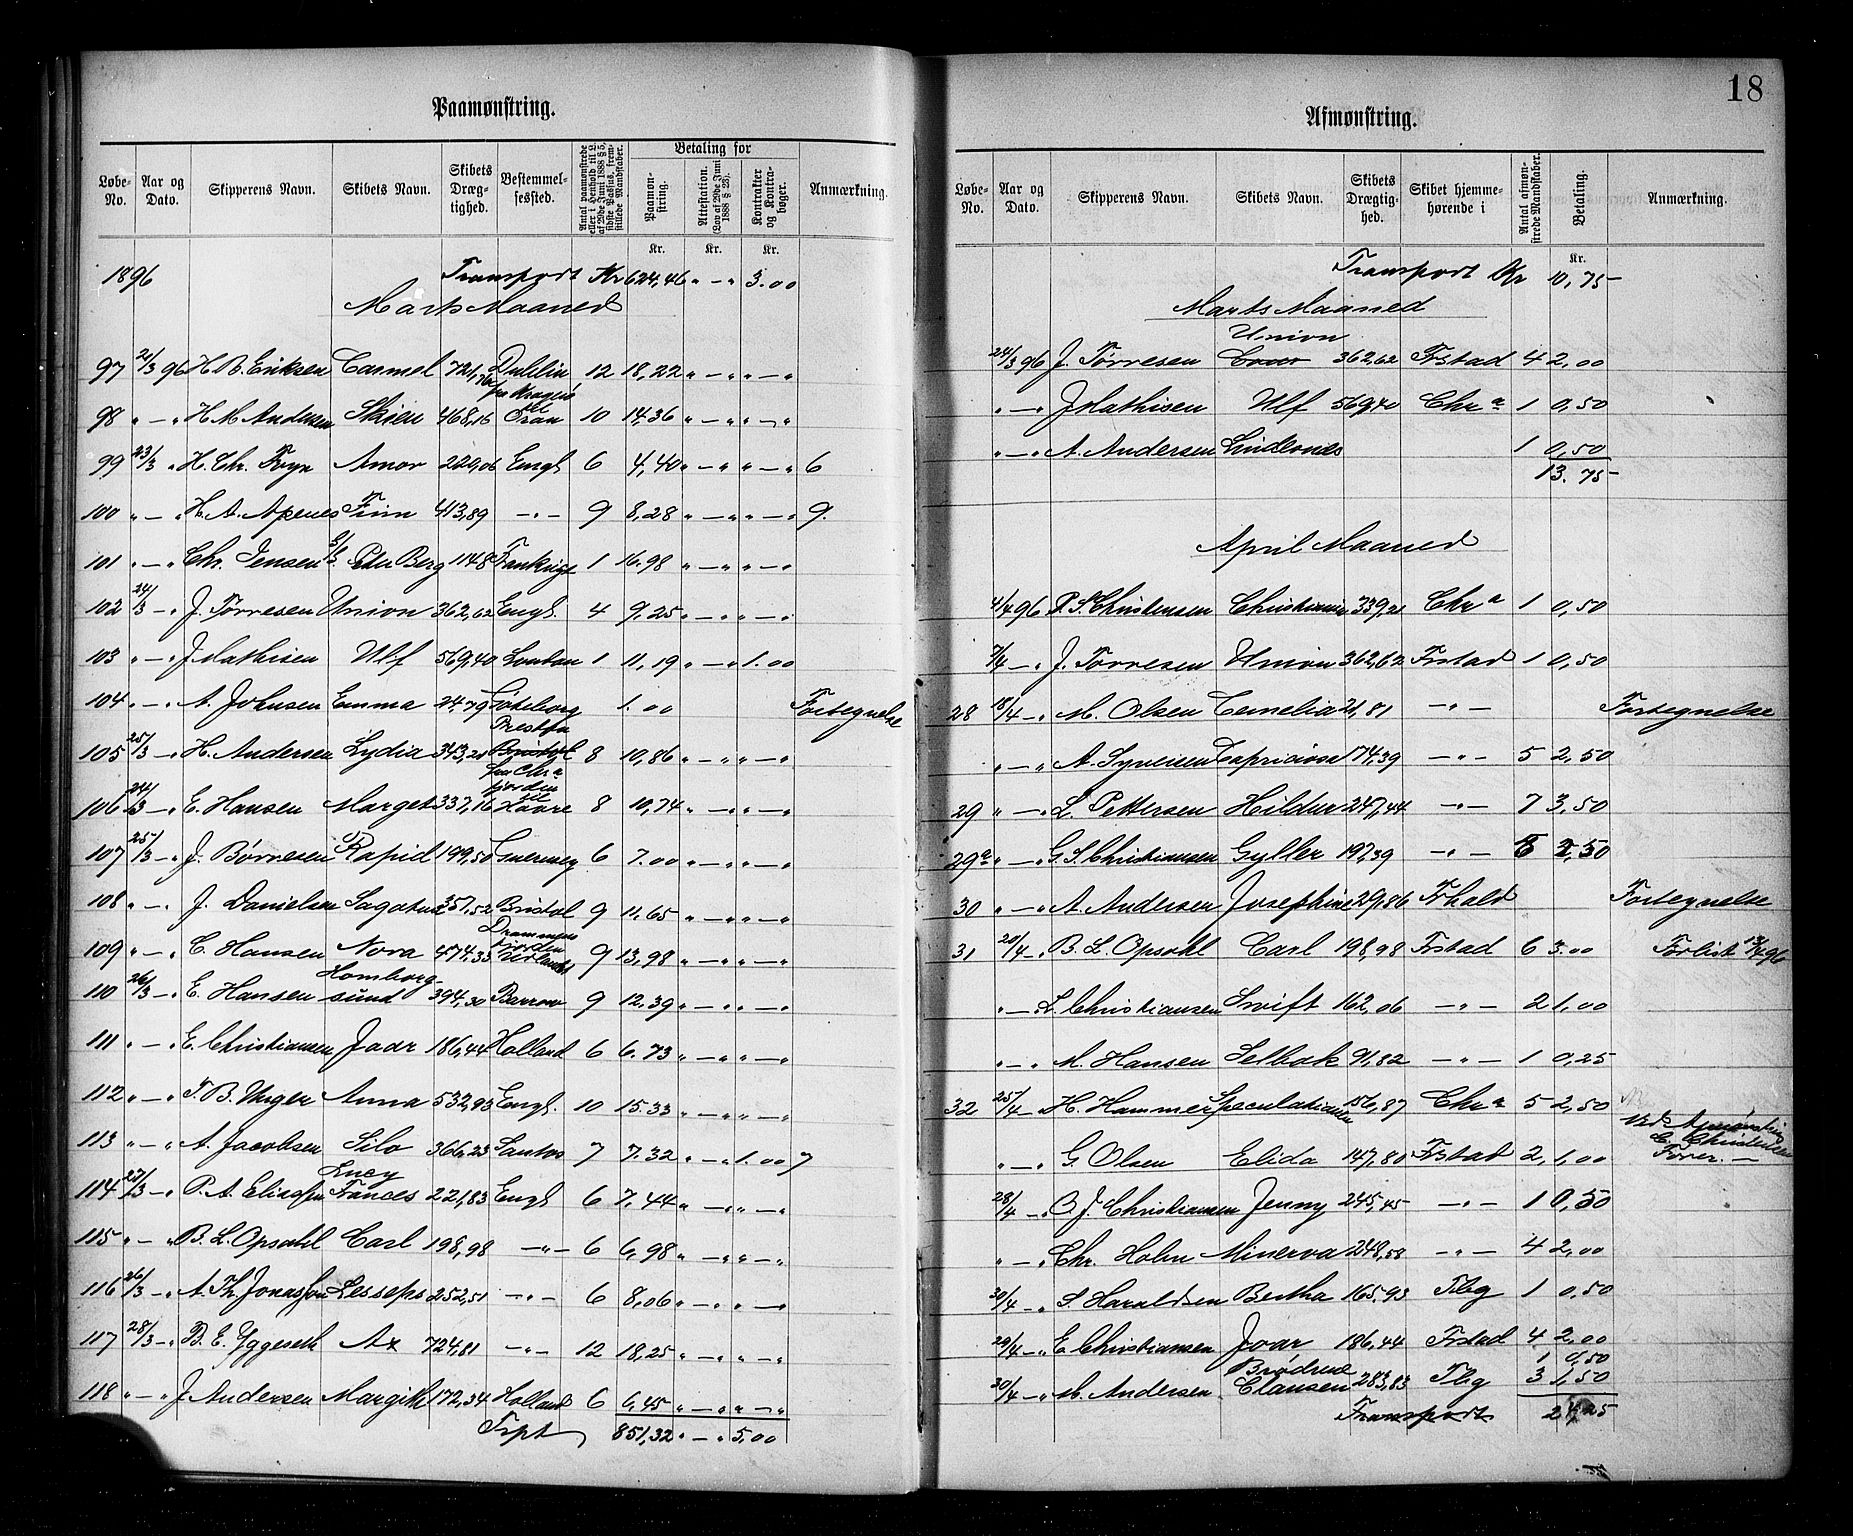 18
Paamønstring.
Løbe-No. Aar og Dato. Skipperens Navn. Skibets Navn. Skibets Dræg-tighed. Bestemmel-sessted. Antal paamønstrede eller i Henhold til L. af 29de Juni 1888 § 5, sidste Passus, frem-stillede Mandskaber. Betaling for Paamøn-string. Attestation. (Lov af 29de Juni 1888 § 23). Kontrakter og Kontra-bøger. Anmærkning.
Kr. Kr. Kr.
1896 Transport Kr 624,46 " — " 3.00
Marts Maaned
97 21/3 96 H. B. Eriksen Carmel 721,76 Dublin 12 18,22 " — " " — "
98 " — " H. M. Andersen Skien 468,16 fra Kragerø til Oran 10 14,36 " — " " — "
99 23/3 " H. Chr. Foyn Amor 229,06 Engl 6 4,40 " — " " — " 6
100 " — " H. A. Apenes Finn 413,89 — " — 9 8,28 " — " " — " 9.
101 " — " Chr. Jensen S/S Peter Berg 1148 Frankrige 1 16.98 " — " " — "
102 24/3 — " J. Tørresen Union 362,62 Engl. 4 9,25 " — " " — "
103 " — " J Mathisen Ulf 569,40 London 1 11,19 " — " 1.00
104 " — " A. Johnsen Emma 24,79 Göteborg 1.00 Fortegnelse
105 25/3 — " H. Andersen Lydia 343,21 Preston Bristol 8 10,86 " — " " — "
106 24/3 — " E. Hansen Marget 337,16 fra Chra fjorden til Havre 8 10,74 " — " " — "
107 25/3 — " J. Børresen Rapid 199,50 6 7.00 " — " " — "
108 " — " J. Danielsen Sagatun 357,52 Bristol 9 11,65 " — " " — "
109 " — " C. Hansen Nora 474,35 Drammens fjorden 9 13,98 " — " " — "
110 26/3 — " E. Hansen Homborg-sund 394,30 Barrow 9 12,39 " — " " — "
111 " — " E. Christiansen Joar 186,44 Holland 6 6,73 " — " " — "
112 " — " T. B. Unger Anna 532,93 Engl. 10 15.33 " — " " — "
113 " — " A. Jacobsen Silo 366,23 Santos 7 7.32 " — " 1.00 7
114 27/3 — " P. A. Eliassen Lucy Frances 221,83 Engl 6 7,44 " — " " — "
115 " — " B. L. Opsahl Carl 198,98 — " — 6 6,98 " — " " — "
116 26/3 — " A. Th. Jonassen Lesseps 252,51 — " — 6 8,06 " — " " — "
117 28/3 — " B. E. Yggeseth Ax 724,81 — " — 12 18,25 " — " " — "
118 " — " J Andersen Margith 172,34 Holland 6 6,45 " — " " — "
Trpt 851,32 " — " 5,00
Afmønstring.
Løbe-No. Aar og Dato. Skipperens Navn. Skibets Navn. Skibets Drægtig-hed. Skibet hjemme-hørende i Antal afmøn-strede Mandskaber. Betaling. Anmærkning.
Kr.
Transport Kr 10,75
Marts Maaned
24/3 96 J. Tørresen Union 362,62 Frstad 4 2,00
" — " J Mathisen Ulf 569,40 Chr a 1 0,50
" — " A. Andersen Lindesnes 1 0,50
13.75
April Maaned
4/4 96 P. S. Christensen Christiania 339,21 Chr a 1 0,50
7/4 — " J. Tørresen Union 362,62 Frstad 1 0,50
28 18/4 — " M. Olsen Cornelia 21,81 — " — Fortegnelse
" — " A. Syversen Capriciosa 174,39 — " — 5 2,50
29 " — " L. Pettersen Hildur 247,44 — " — 7 3,50
29a " — " G. S. Christiansen Gyller 197,39 — " — 5 2,50
30 " — " A. Andersen Josephine 29,86 Frhald Fortegnelse
31 20/4 — " B. L. Opsahl Carl 198,98 Frstad 6 3.00 Forlist
" — " L. Christiansen Swift 162,06 — " — 2 1,00
" — " M. Hansen Selbak 91,82 — " — 1 0,25
32 25/4 — " H. Hammer Speculationen 156,87 Chr a 5 2,50 Ved Afmønstring C. Christensen Fører. —
" — " G. Olsen Elida 147,80 Frstad 2 1,00
28/4 — " O J. Christiansen Jenny 245,45 — " — 1 0,50
" — " Chr. Holm Minerva 248,58 — " — 4 2,00
30/4 — " S. Haraldsen Bertha 165.93 Tbg 1 0,50
29/4 — " E Christiansen Joar 186,44 Frstad 4 2,00
1 0,50
30/4 — " M. Andersen Brødrene Clausen 283,83 Tbg 3 1,50
Transport 24,25